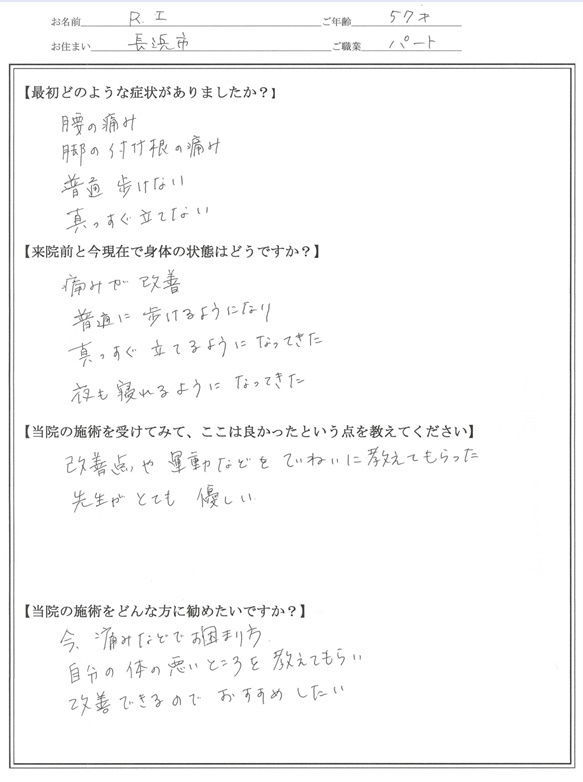 お名前 R. I ご年齢 57才
お住まい 長浜市 ご職業 パート
【最初どのような症状がありましたか？】
腰の痛み
脚の付け根の痛み
普通 歩けない
真っすぐ立てない
【来院前と今現在で身体の状態はどうですか？】
痛みが 改善
普通に 歩けるようになり
真っすぐ 立てるように なってきた
夜も 寝れるように なってきた
【当院の施術を受けてみて、ここは良かったという点を教えてください】
改善点や 運動などを ていねいに教えてもらった
先生が とても 優しい
【当院の施術をどんな方に勧めたいですか？】
今、痛みなどでお困まり方
自分の 体の悪いところを 教えてもらい
改善できるので おすすめ したい